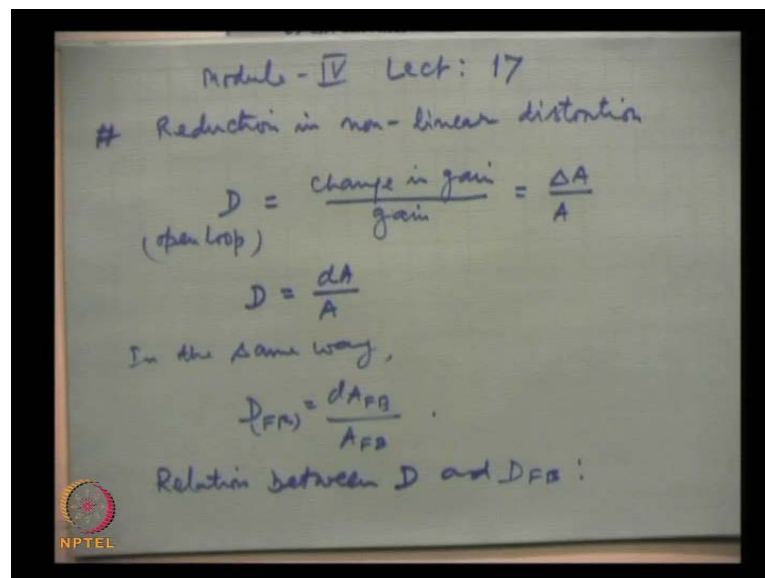 Module - IV Lect: 17
# Reduction in non-linear distortion
D = change in gain / gain = ΔA / A
(open loop)
D = dA / A
In the same way,
D(FB) = dA_FB / A_FB .
Relation between D and D_FB :
NPTEL